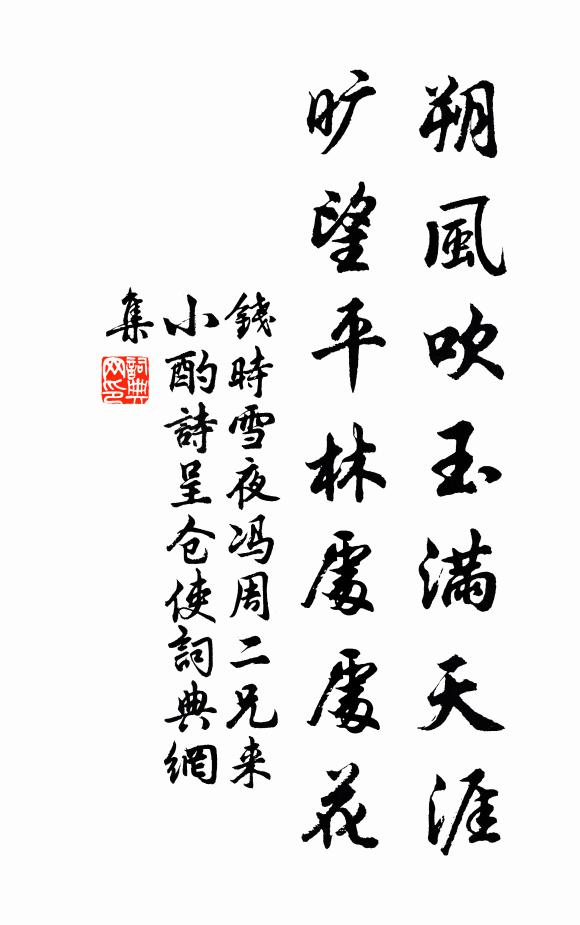 朔風吹玉满天涯
旷望平林處處花
錢時雪夜冯周二兄来
小酌詩呈仓使詞典網
集
詞典
网印